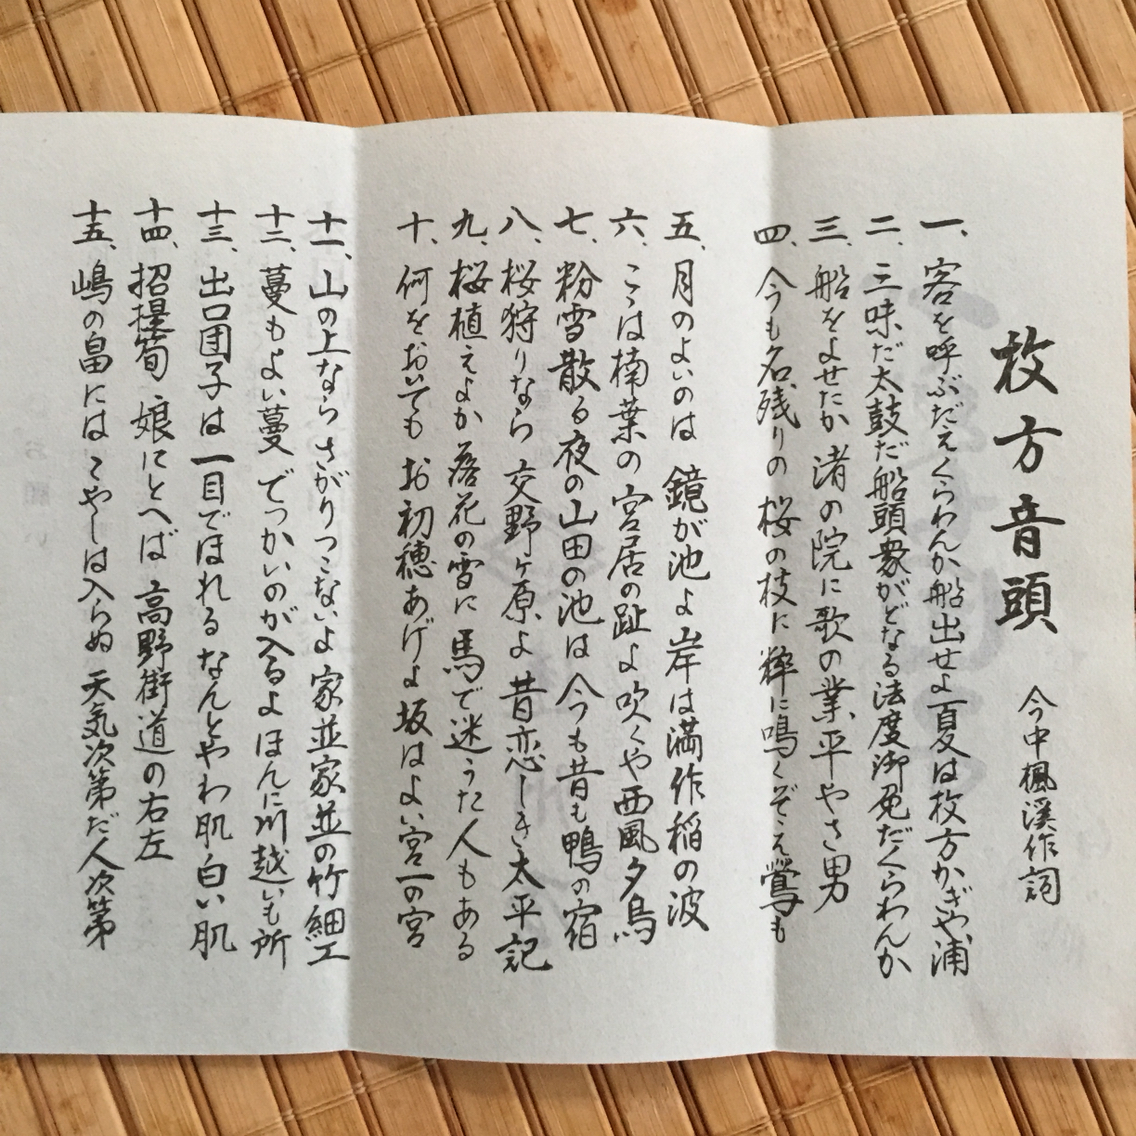 枚方音頭 今中楓溪作詞
一、客を呼ぶだえくらわんか船出せよ夏は枚方かぎや浦
二、三味だ太鼓だ船頭衆がどなる法度御免だくらわんか
三、船をよせたか 渚の院に歌の業平やさ男
四、今も名残りの桜の枝に粋に鳴くぞえ鶯も
五、月のよいのは 鏡が池よ岸は満作稲の波
六、こゝは楠葉の宮居の趾よ吹くや西風夕烏
七、粉雪散る夜の山田の池は今も昔も鴨の宿
八、桜狩りなら 交野ヶ原よ昔恋しき太平記
九、桜植えよか落花の雪に馬で迷うた人もある
十、何をおいても お初穂あげよ坂はよい宮一の宮
十一、山の上ならさがりつこないよ家並家並の竹細工
十二、蔓もよい蔓でっかいのが入るよほんに川越いも所
十三、出口団子は一目でほれるなんとやわ肌白い肌
十四、招提筍 娘にとへば 高野街道の右左
十五、嶋の畠にはこやしは入らぬ 天気次第だ人次第